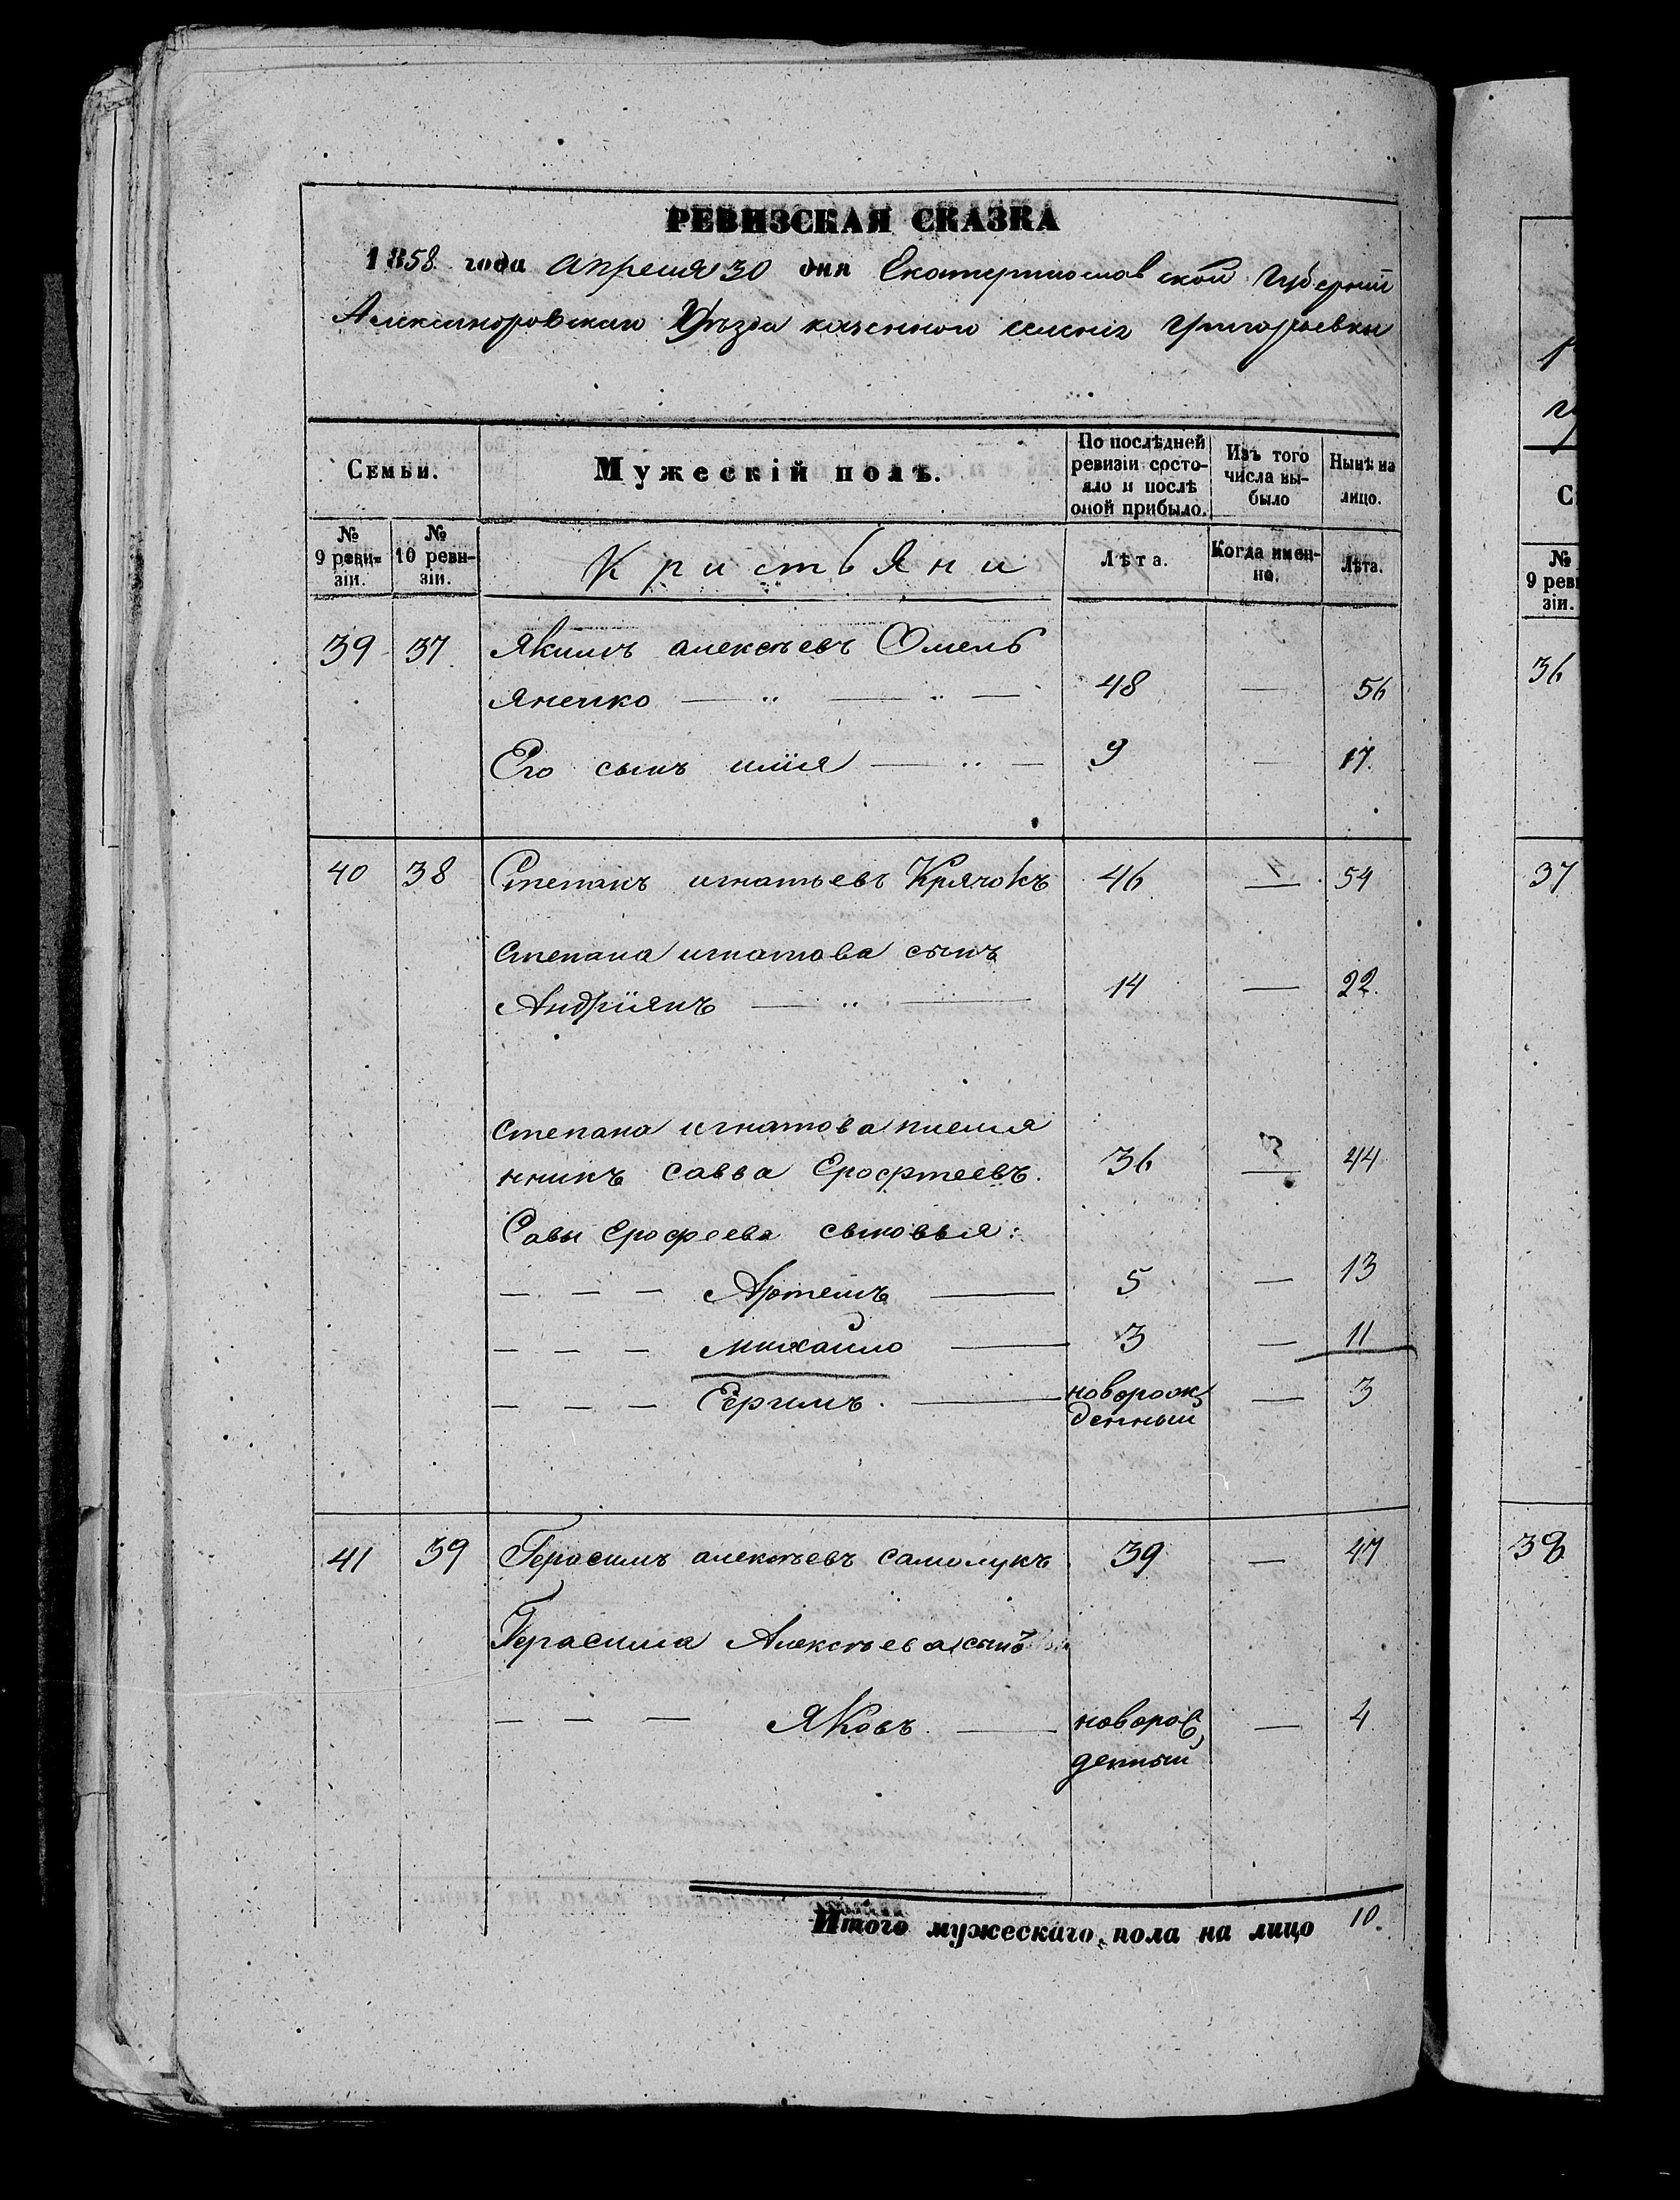 РЕВИЗСКАЯ СКАЗКА
1858 года апреля 30 дня Екатеринославской Губернии
Александровскаго Уѣзда казенного селения Григорьевки
Семьи.
Мужескій полъ.
По послѣдней ревизіи состояло и послѣ оной прибыло.
Изъ того числа выбыло
Нынѣ на лицо.
№ 9 ревизіи.
№ 10 ревизіи.
Кристьяни
Лѣта.
Когда именно.
Лѣта.
39 37 Якимъ алексѣевъ Омель
яненко — „ — „ — 48 — 56
Его сынъ илія — „ — 9 — 17.
40 38 Степанъ игнатьевъ Крячокъ 46 — 54
степана игнатова сынъ
Андріянъ — „ — 14 — 22.
степана игнатова племя
нникъ савва Ерофтеевъ. 36 — 44
Савы Ерофеева сыновья:
— — — Артемъ — 5 — 13
— — — михаило — 3 — 11
— — — — новорож
денный — 3
41 39 Герасимъ алексѣевъ самолукъ 39 — 47
Герасима Алексѣева сынъ
— — — Яковъ. — новорож
денный — 4
Итого мужескаго пола на лицо 10.
С
№
9 реви
зіи.
36
37
38